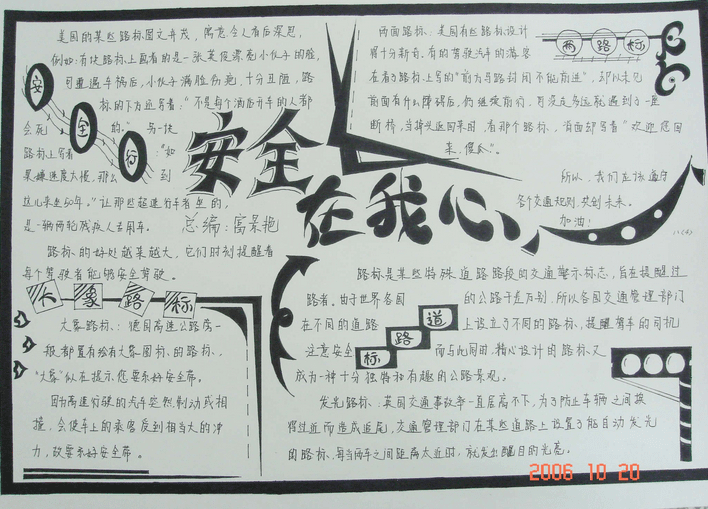 美国的某些路标图文并茂，寓意令人看后深思，
例如：有块路标上画着的是一张英俊漂亮小伙子的脸，
可遭遇车祸后，小伙子满脸伤疤，十分丑陋，路
标的下方还写着："不是每个酒后开车的人都
会死的。"另一块
路标上写着："如
果嫌速度太慢，那么到
这儿来走50年。"让那些超速行驶者坐的，
是一辆两轮残疾人专用车。
路标的好处越来越大，它们时刻提醒着
每个驾驶者能够安全驾驶。
安全行
安全
在我心
总编：高景艳
两路标
两面路标：美国有些路标设计
得十分新奇，有的驾驶汽车的游客
在看了路标上写的"前方马路封闭不能前进"，却以未见
前面有什么障碍后，仍继续前行，可没走多远就遇到了一座
断桥，当掉头返回来时，看那个路标，背面却写着"欢迎您回
来，傻瓜"。
所以，我们应该遵守
各个交通规则，共创未来。
加油！
八(4)
大象路标
大象路标：德国高速公路旁一
般都画有绘有大象图标的路标，
"大象"似在提示您要系好安全带。
因为高速行驶的汽车突然制动或相
撞，会使车上的乘客受到相当大的冲
力，故要系好安全带。
道路标
路标是某些特殊道路路段的交通警示标志，旨在提醒过
路者。由于世界各国的公路千差万别，所以各国交通管理部门
在不同的道路上设立了不同的路标，提醒驾车的司机
注意安全，而与此同时，精心设计的路标又
成为一种十分独特和有趣的公路景观。
发光路标：英国交通事故率一直居高不下，为了防止车辆之间挨
得过近而造成追尾，交通管理部门在某些道路上设置了能自动发光
的路标，每当两车之间距离太近时，就发出醒目的光亮。
2006 10 20